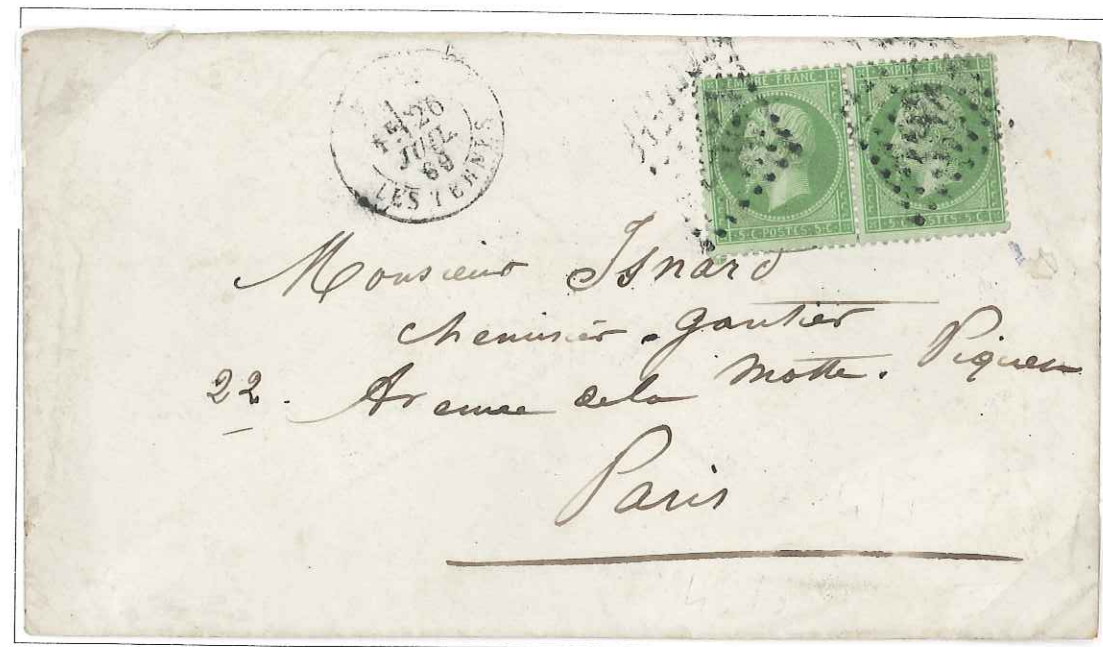 26
JUIL
69
LES TERNES
EMPIRE FRANC
5 C POSTES 5 C
5 C POSTES 5 C
Monsieur Isnard
chemisier - gantier
22. Avenue de la Motte. Piquet
Paris